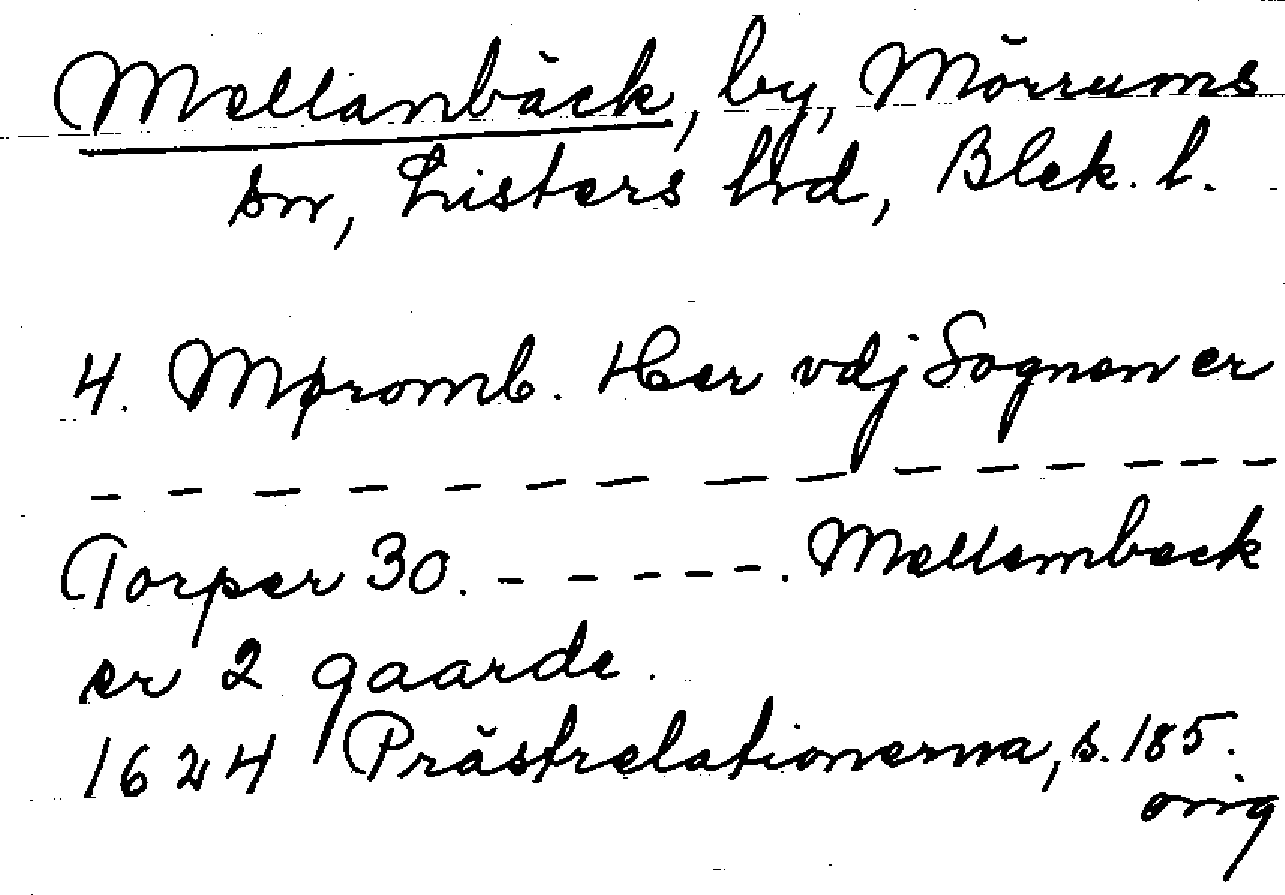 Mellanbäck, by, Mörrums
sn, Listers hrd, Blek. l.
4. Møromb. Her vdj Sognen er
– – – – – – – – – – – – –
Torper 30. – – – – –. Mellembeck
er 2 gaarde.
1624 Prästrelationerna, s. 185.
orig